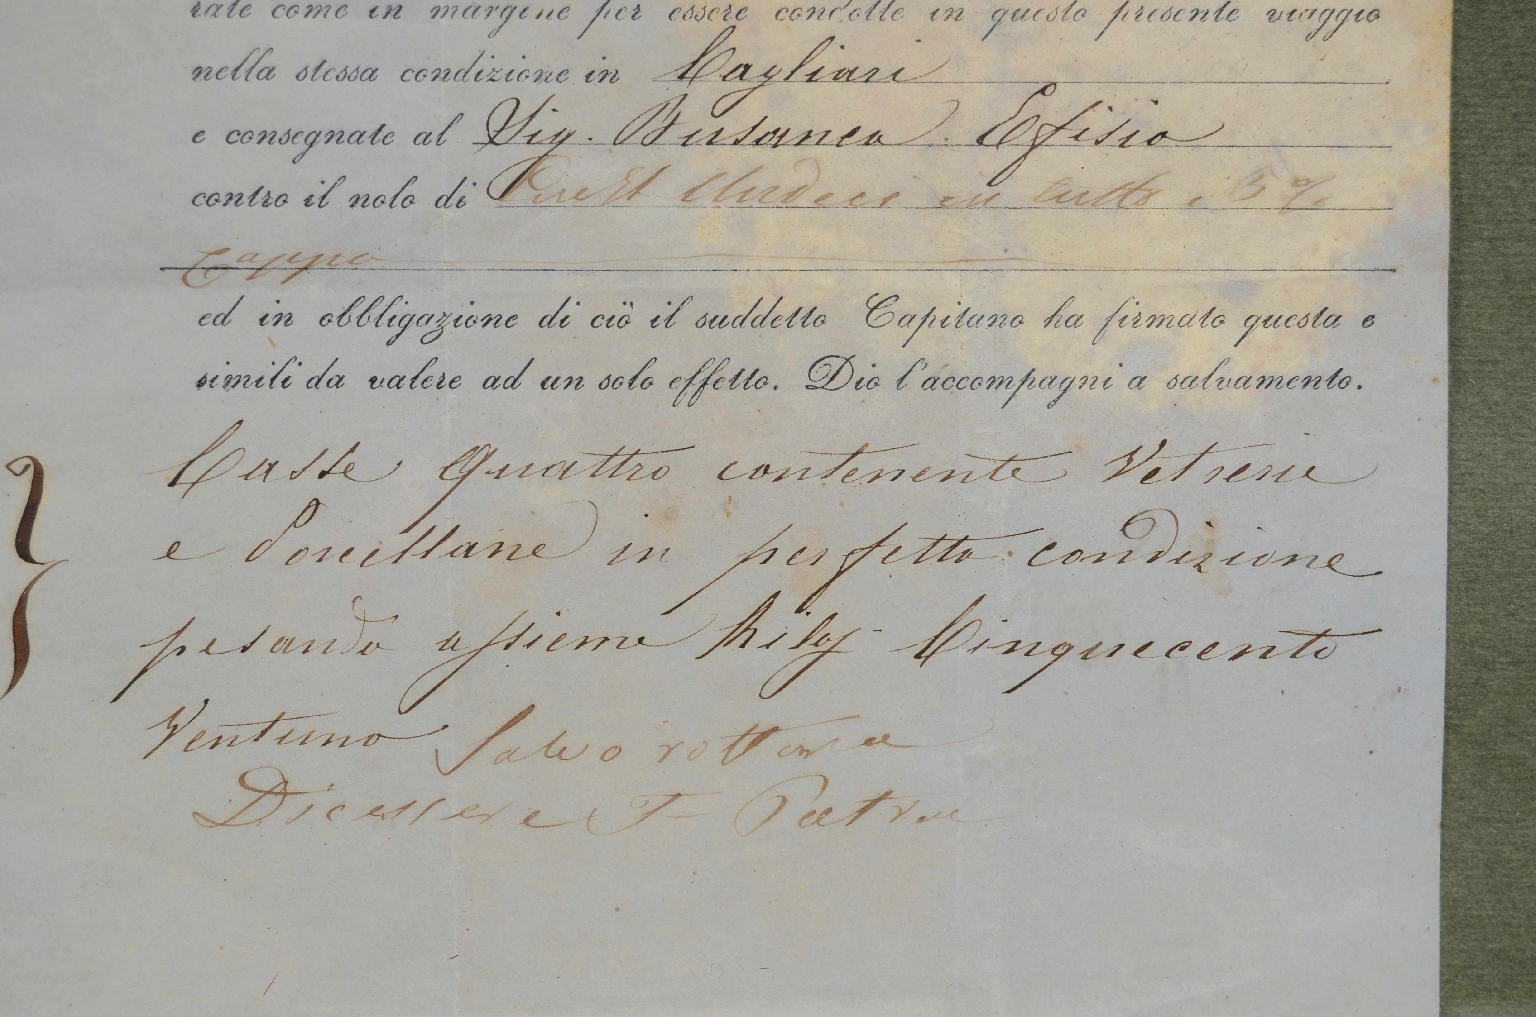 rate come in margine per essere condotte in questo presente viaggio
nella stessa condizione in Cagliari
e consegnate al Sig. Busanca Efisio
contro il nolo di Undeci in tutto e 5 %
Cappa
ed in obbligazione di ciò il suddetto Capitano ha firmato questa e
simili da valere ad un solo effetto. Dio l'accompagni a salvamento.
Casse Quattro contenente Vetrerie
e Porcellane in perfetta condizione
pesando assieme Kilog. Cinquecento
Ventuno Salvo rotture
Dicessere F